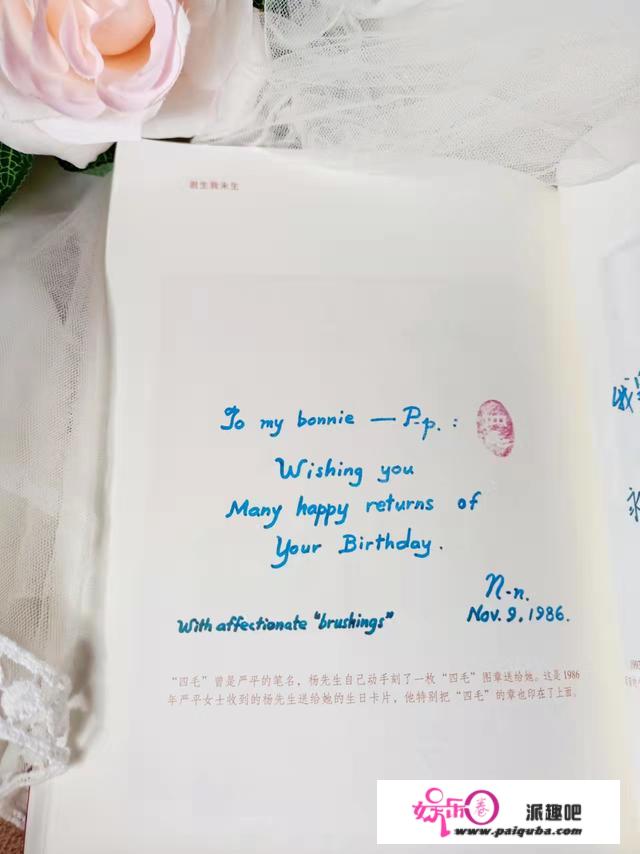 君生我未生
To my bonnie — P-p. :
Wishing you
Many happy returns of
Your Birthday.
N-n.
Nov. 9, 1986.
With affectionate "brushings"
“四毛”曾是严平的笔名，杨先生自己动手刻了一枚“四毛”图章送给她。这是1986
年严平女士收到的杨先生送给她的生日卡片，他特别把“四毛”的章也印在了上面。
娱乐圈 派趣吧
www.paiquba.com